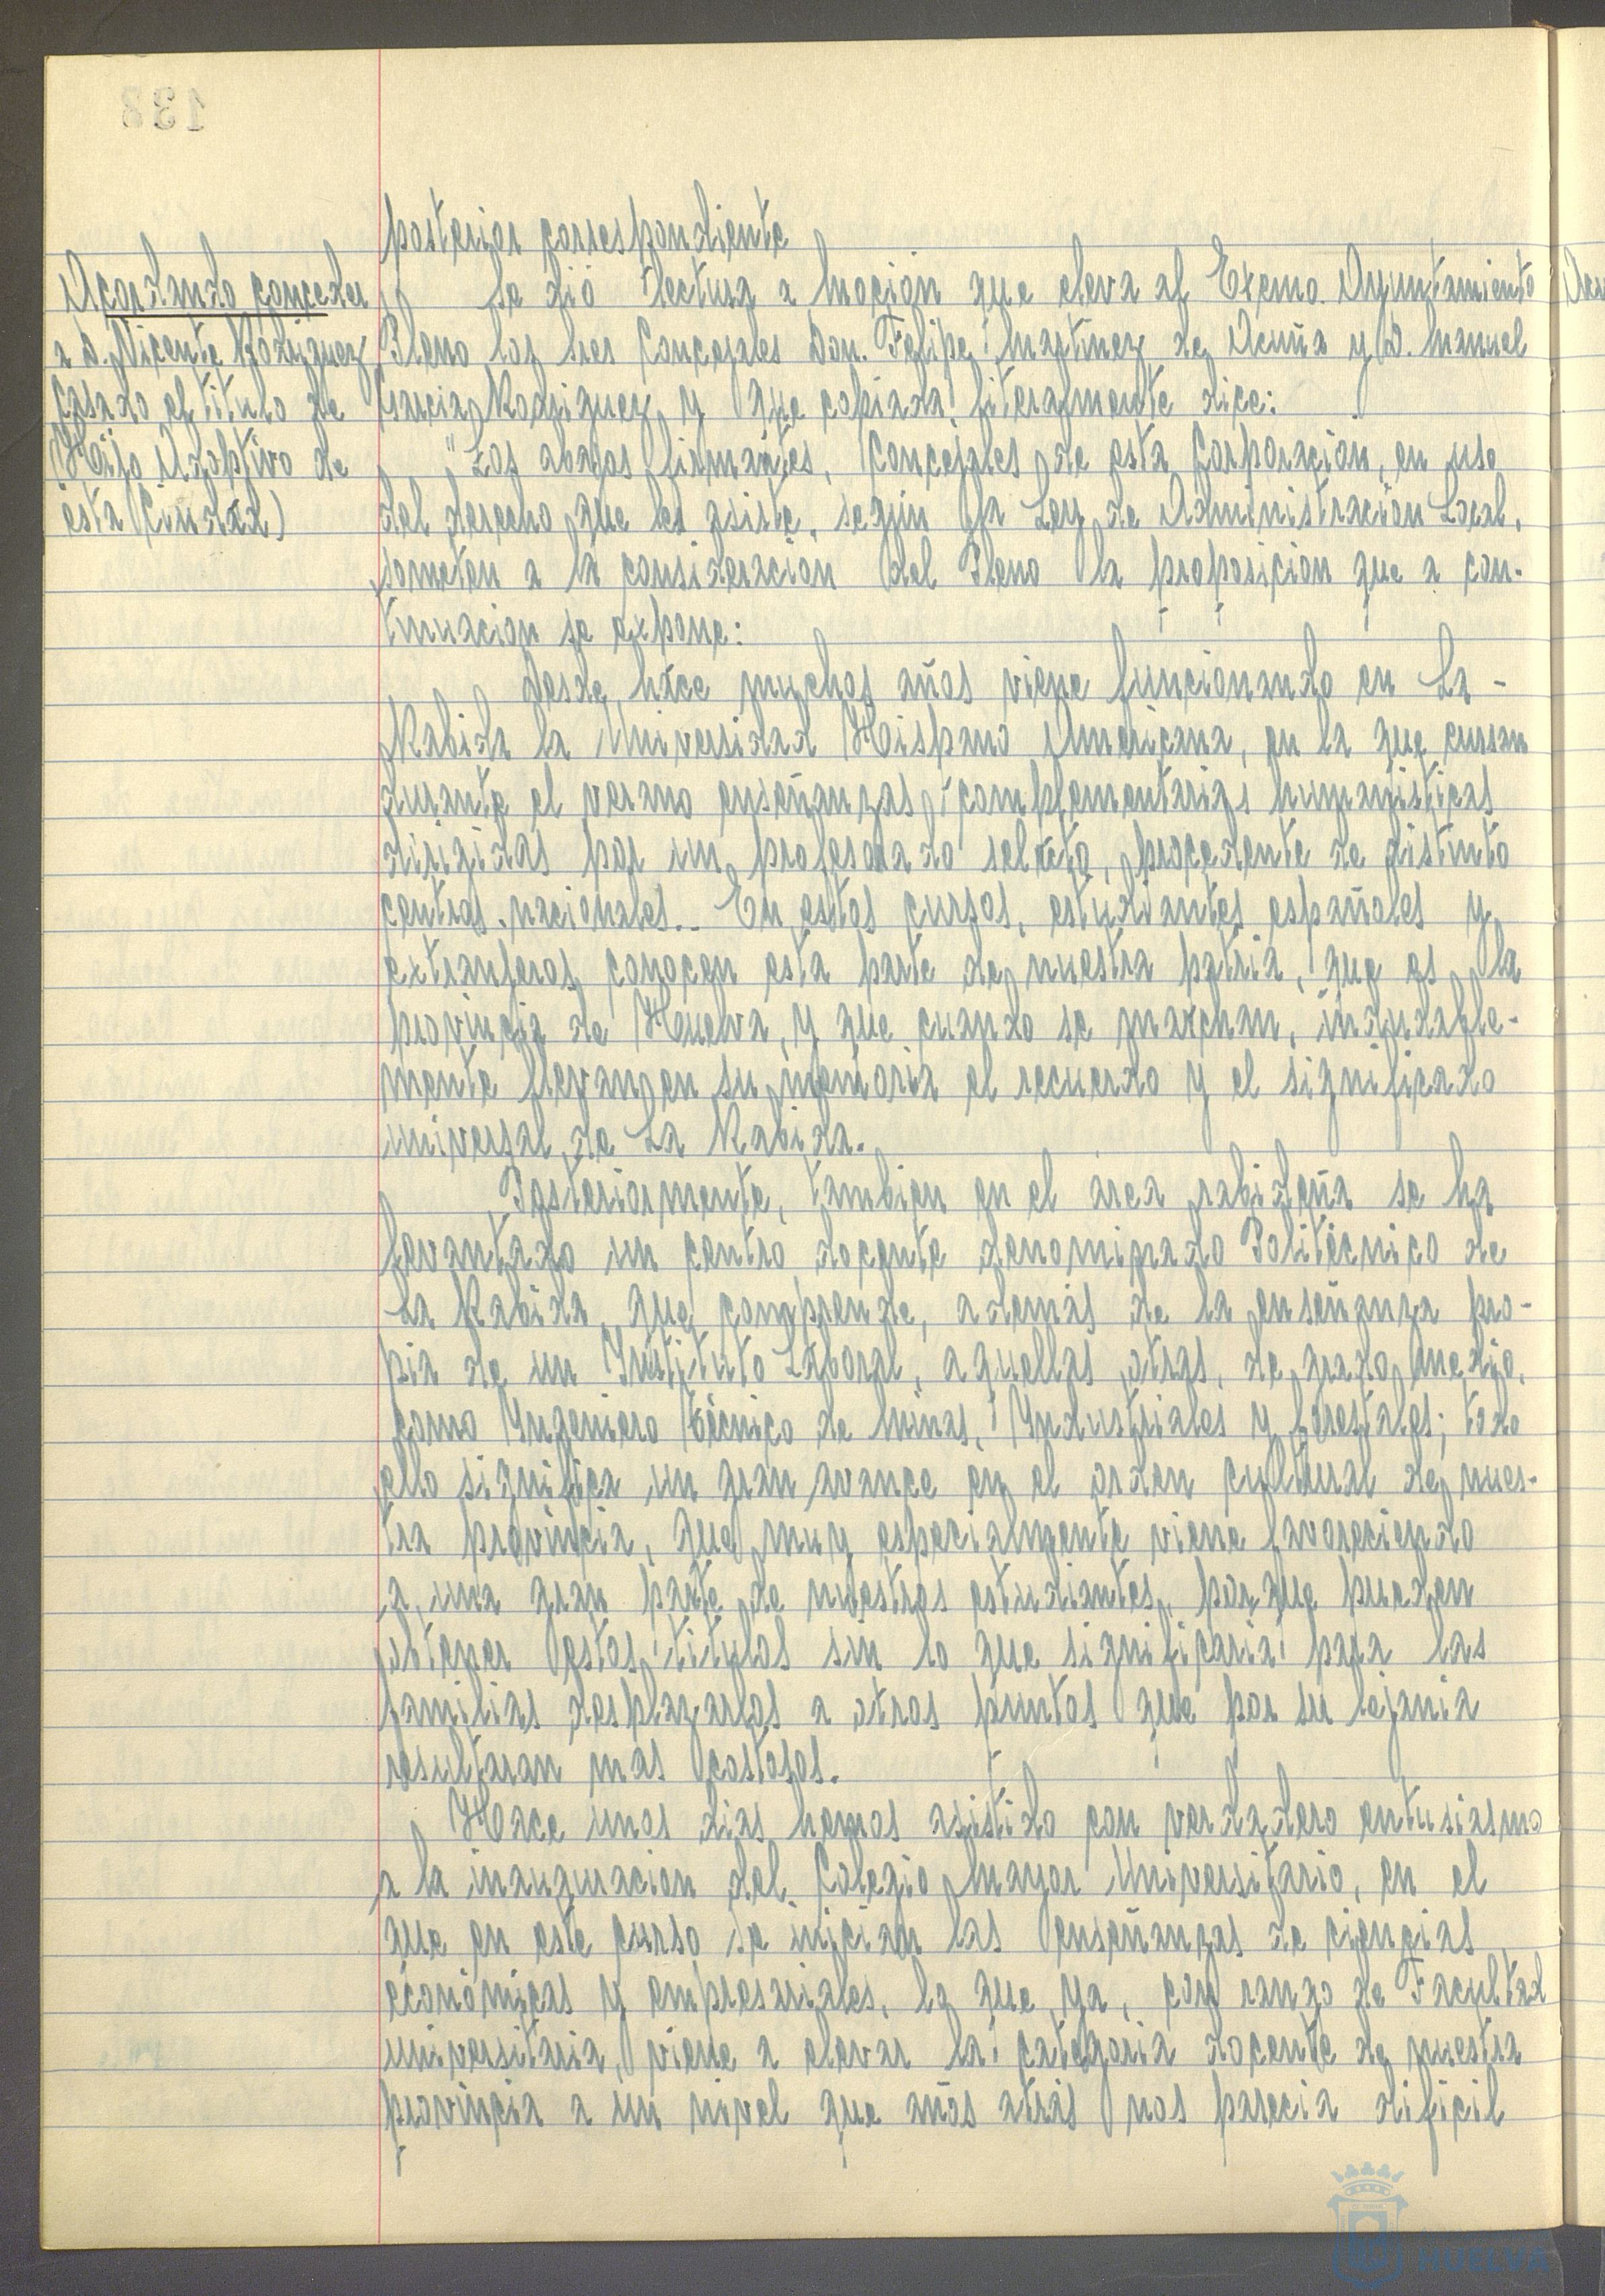 posterior correspondiente
Acordando conceder
a D. Vicente Rodriguez
Casado el titulo de
Hijo Adoptivo de
esta Ciudad)
Se dió lectura a moción que eleva al Excmo. Ayuntamiento
Pleno los Sres Concejales Don. Felipe Martinez de Acuña y D. Manuel
Garcia Rodriguez y que copiada literalmente dice:
"Los abajos firmantes, Concejales de esta Corporacion, en uso
del derecho que les asiste, según la Ley de Administracion Local,
someten a la consideracion del Pleno la proposicion que a con-
tinuacion se expone:
Desde hace muchos años viene funcionando en La -
Rabida la Universidad Hispano Americana, en la que cursan
durante el verano enseñanzas complementarias humanisticas
dirigidas por un profesorado selecto, procedente de distinto
centros nacionales.. En estos cursos, estudiantes españoles y
extranjeros conocen esta parte de nuestra patria, que es la
provincia de Huelva, y que cuando se marchan, indudable-
mente llevan en su memoria el recuerdo y el significado
universal de La Rabida.
Posteriormente, tambien en el área rabideña se ha
levantado un centro docente denominado Politécnico de
La Rabida, que comprende, además de la enseñanza pro-
pia de un Instituto Laboral, aquellas otras, de grado medio,
como Ingeniero técnico de Minas, Industriales y Forestales; todo
ello significa un gran avance en el orden cultural de nues-
tra provincia, que muy especialmente viene favoreciendo
a una gran parte de nuestros estudiantes, porque pueden
obtener estos titulos sin lo que significaria para las
familias desplazarlos a otros puntos que por su lejania
resultaran mas costosos.
Hace unos dias hemos asistido con verdadero entusiasmo
a la inauguracion del Colegio Mayor Universitario, en el
que en este curso se inician las enseñanzas de ciencias
económicas y empresariales, lo que ya, con rango de Facultad
universitaria, viene a elevar la categoria docente de nuestra
provincia a un nivel que años atrás nos parecia dificil
HUELVA